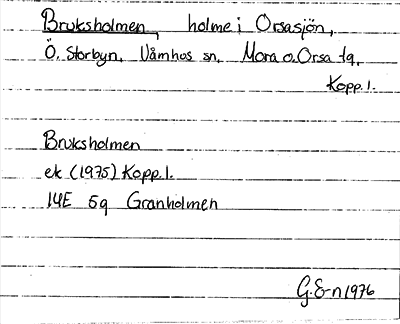 Bruksholmen, holme i Orsasjön,
Ö. Storbyn. Våmhus sn. Mora o. Orsa tg.
Kopp. l.
Bruksholmen
ek (1975) Kopp. l.
14E 5g Granholmen
G. E-n 1976